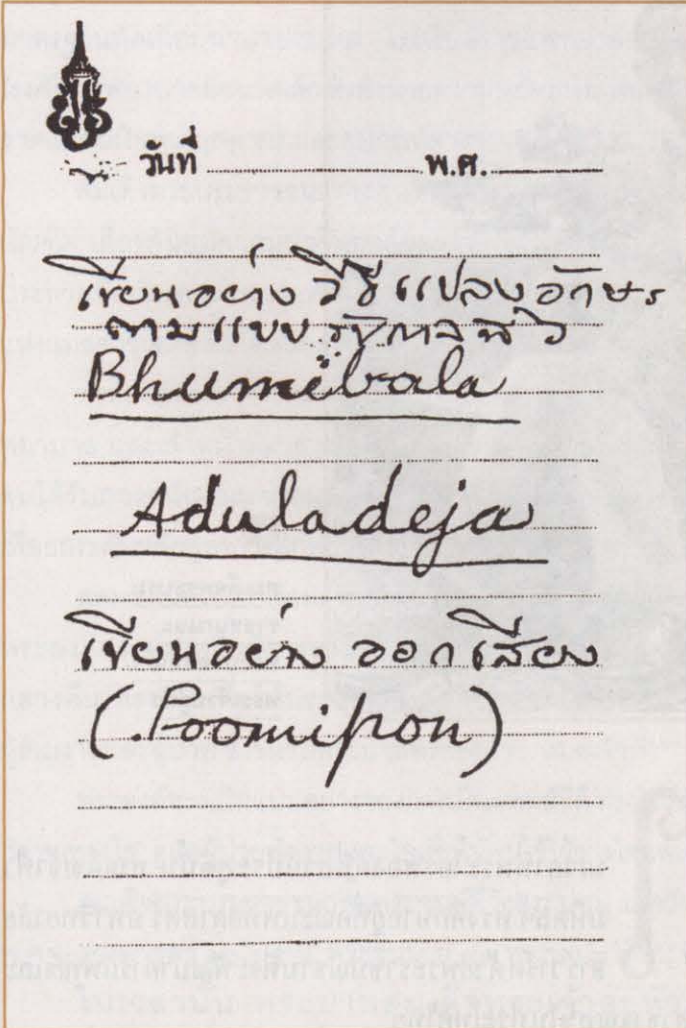 วันที่ พ.ศ.
เขียนอย่าง วิธี แปลง อักษร
ตามแบบ
Bhumibala
Aduladeja
เขียนอย่าง ออกเสียง
(Poomipon)